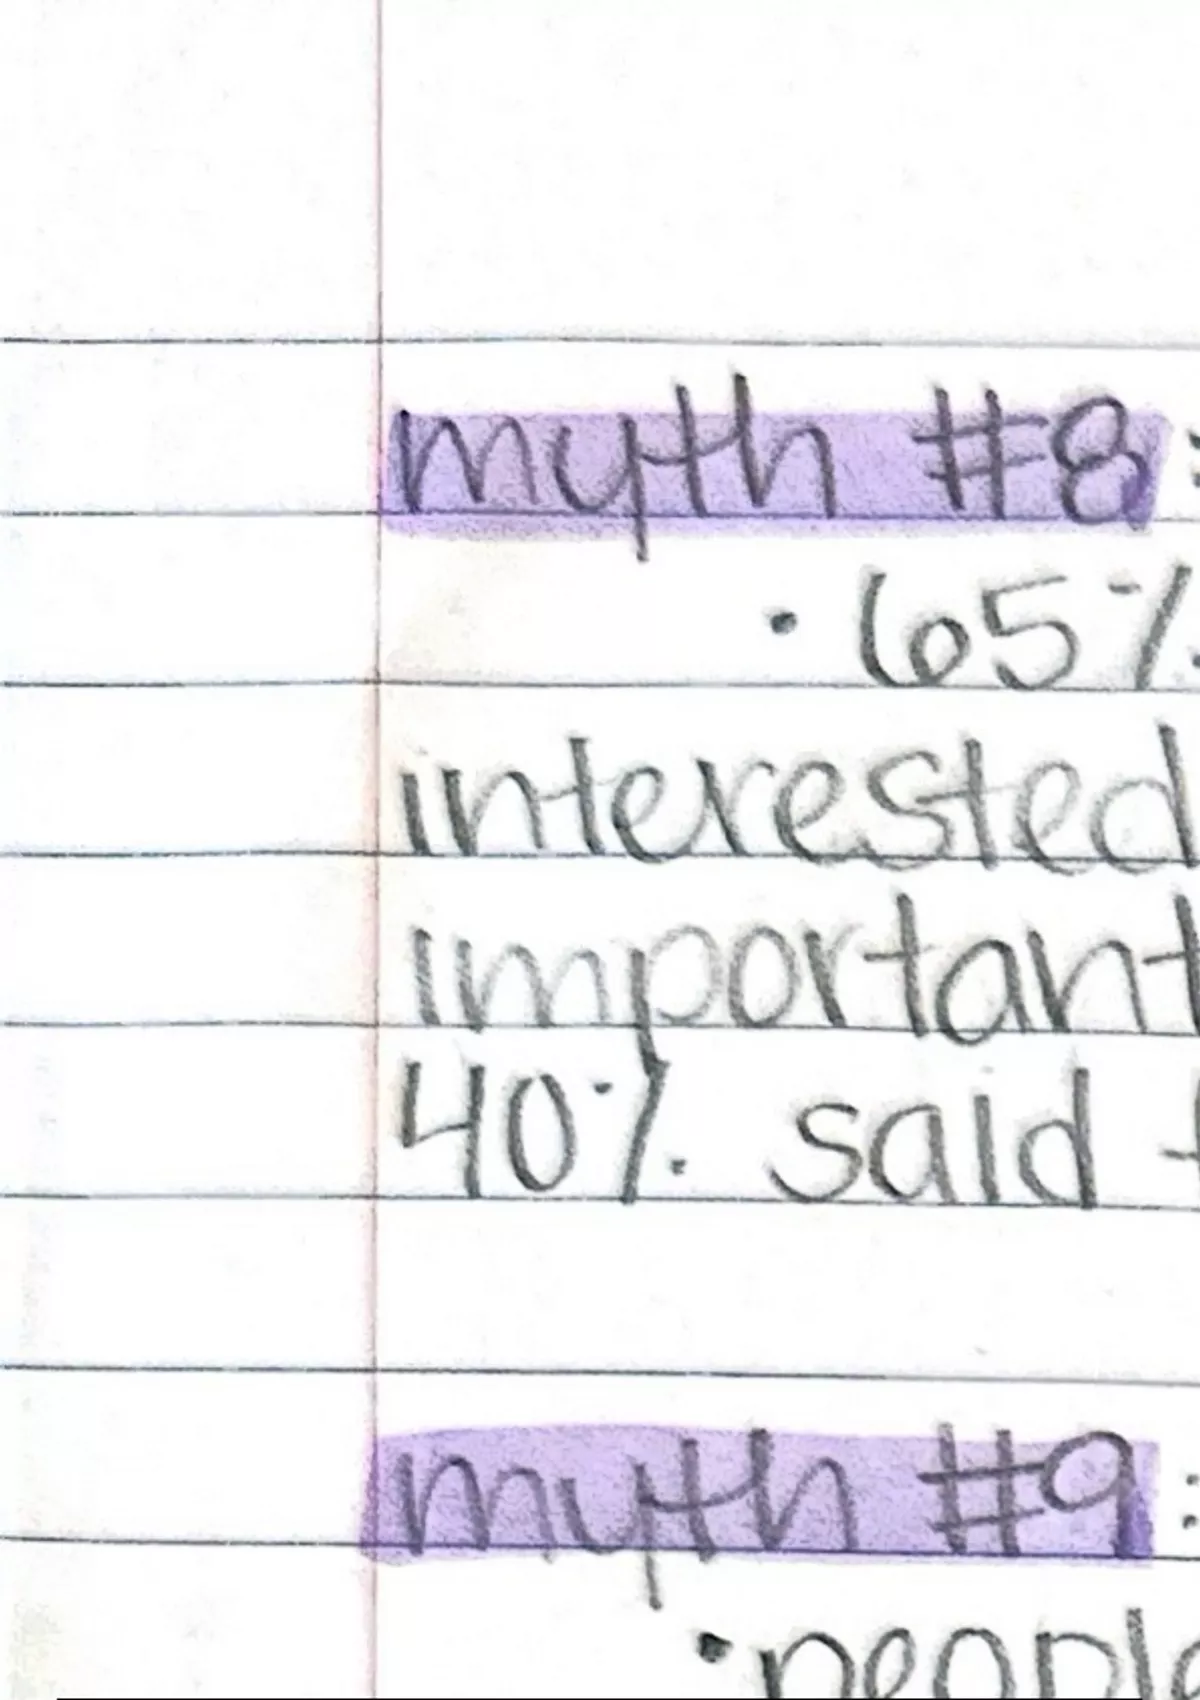 myth #8:
• 65%
interested
important
40% said
myth #9:
• people